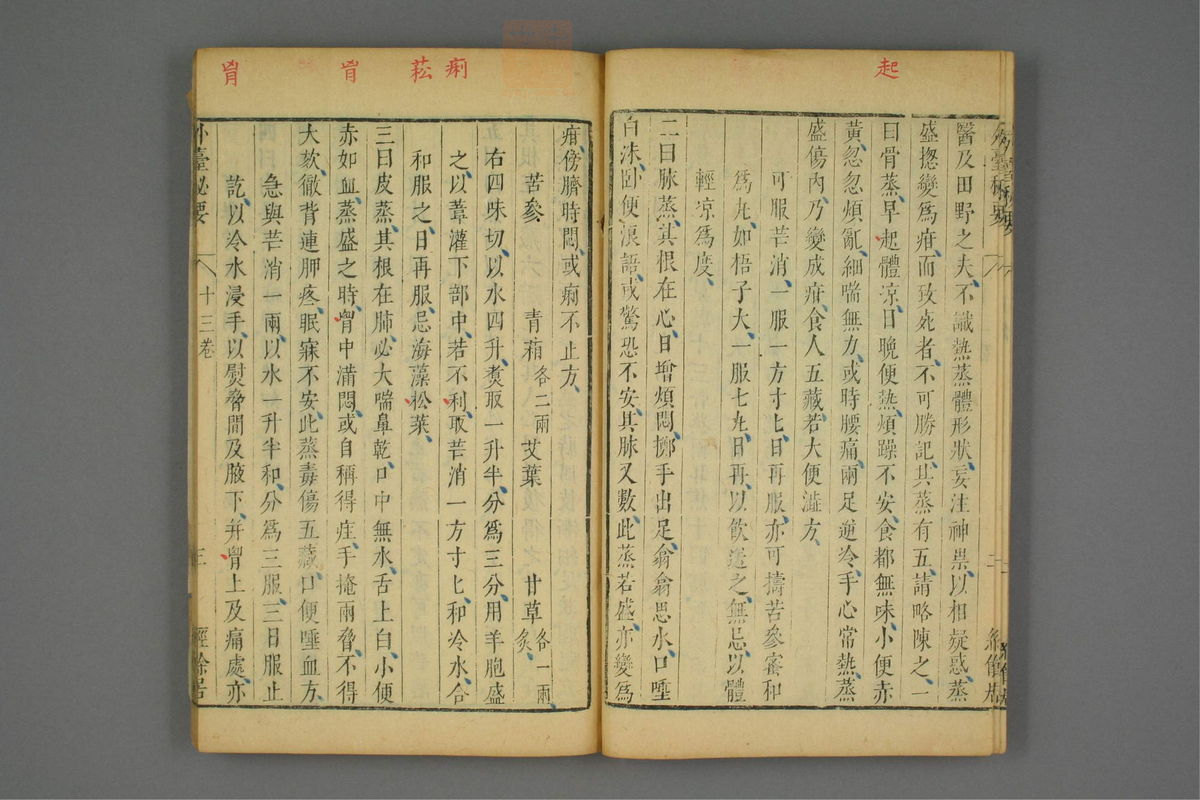 起
醫及田野之夫、不識熱蒸體形狀、妄注神祟、以相疑惑、蒸
盛揔變爲疳、而致死者、不可勝記、其蒸有五、請略陳之、一
曰骨蒸、早起體凉、日晚便熱、煩躁不安、食都無味、小便赤
黃、忽忽煩亂、細喘無力、或時腰痛、兩足逆冷、手心常熱、蒸
盛傷內、乃變成疳、食人五藏、若大便澁方、
可服芒消、一服一方寸匕、日再服、亦可擣苦參蜜和
爲丸、如梧子大、一服七丸、日再、以飲送之、無忌、以體
輕凉爲度、
二曰脉蒸、其根在心、日增煩悶、擲手出足、翕翕思水、口唾
白沫、卧便浪語、或驚恐不安、其脉又數、此蒸若盛、亦變爲
痢
菘
胷
胷
疳、傍臍時悶、或痢不止方、
苦參 青葙各二兩 艾葉 甘草各一兩炙、
右四味切、以水四升、煑取一升半、分爲三分、用羊胞盛
之、以葦灌下部中、若不利、取芒消一方寸匕、和冷水、合
和服之、日再服、忌海藻、松菜、
三曰皮蒸、其根在肺、必大喘鼻乾、口中無水、舌上白、小便
赤如血、蒸盛之時、胷中滿悶、或自稱得疰、手掩兩脅、不得
大欬、徹背連胛疼、眠寐不安、此蒸毒傷五藏、口便唾血方、
急與芒消一兩、以水一升半和、分爲三服、三日服止
訖、以冷水浸手、以熨脅間及腋下、并胷上及痛處、亦
外臺祕要 十三卷 三 經餘居